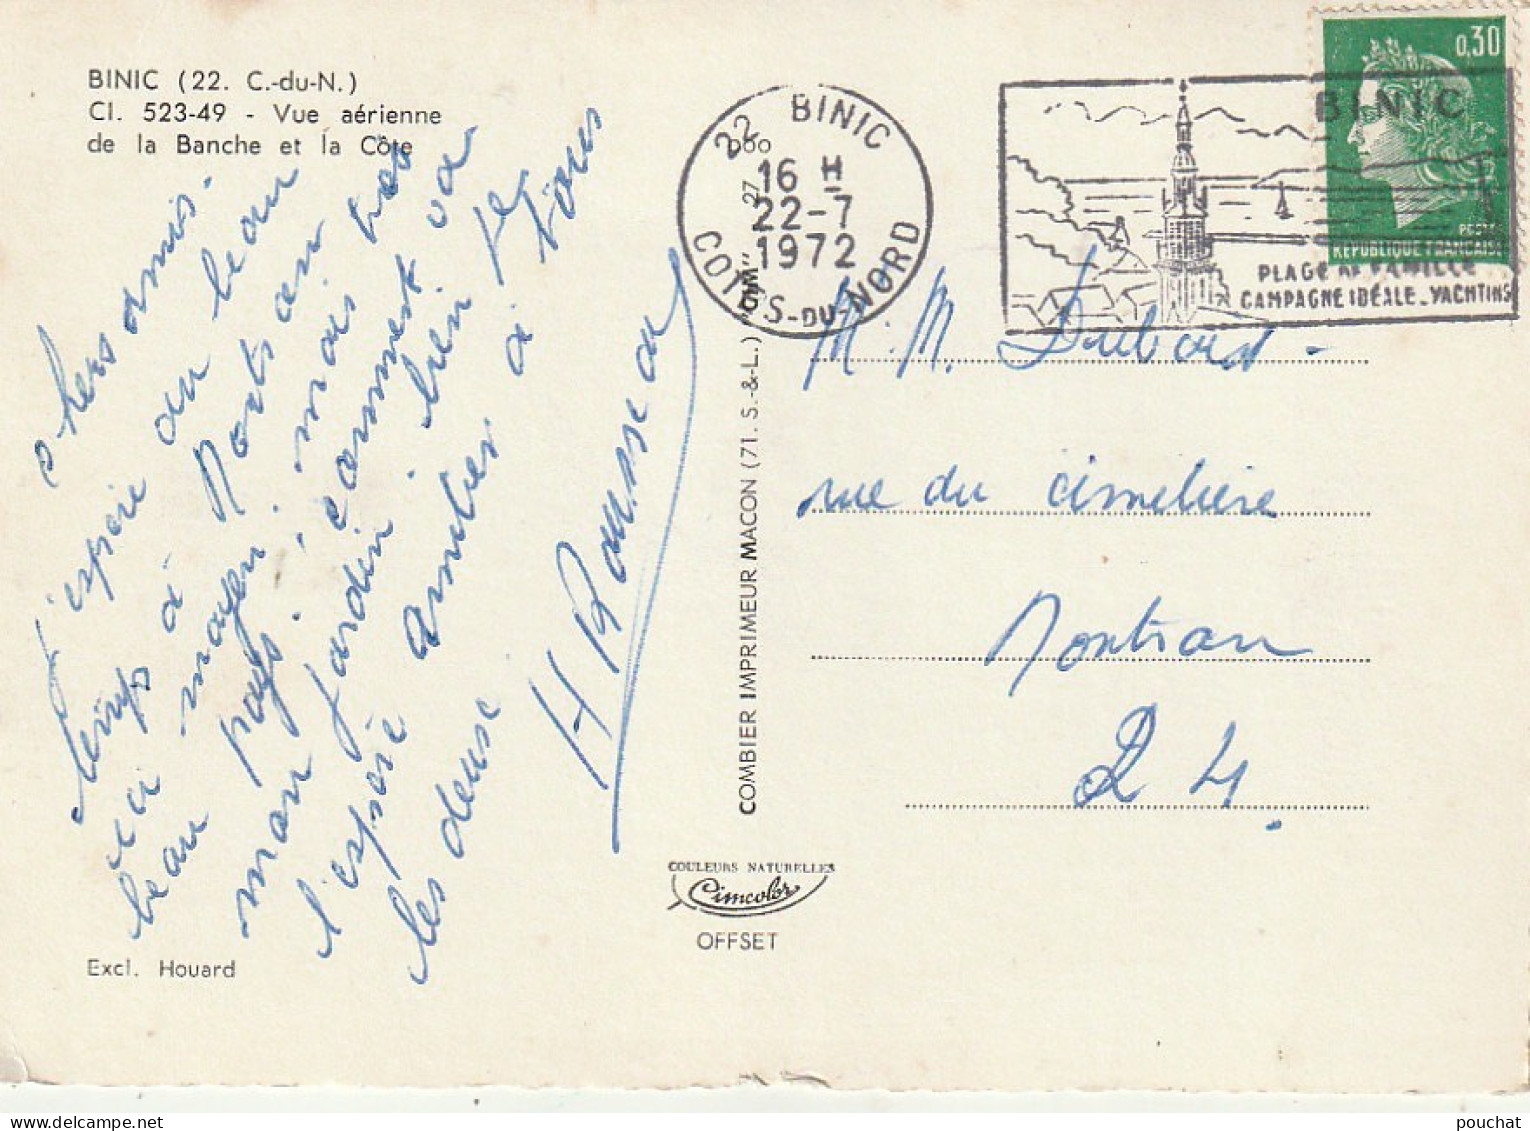 BINIC (22. C.-du-N.)
Cl. 523-49 - Vue aérienne
de la Banche et la Côte
chers amis.
J'espère du beau
temps à Montran
ici moyen. mais très
beau pays. comment va
mon jardin bien je
l'espère amities à tous
les deux
H Rousseau
Excl. Houard
COMBIER IMPRIMEUR MACON (71. S.-&-L.) "CIM"
COULEURS NATURELLES
Cimcolor
OFFSET
22 BINIC
16 H
22-7
1972
COTES-DU-NORD
BINIC
PLAGE DE FAMILLE
CAMPAGNE IDÉALE_YACHTING
0,30
POSTES
REPUBLIQUE FRANCAISE
M. M. Dubois
rue du cimetière
Montran
24.
pouchat